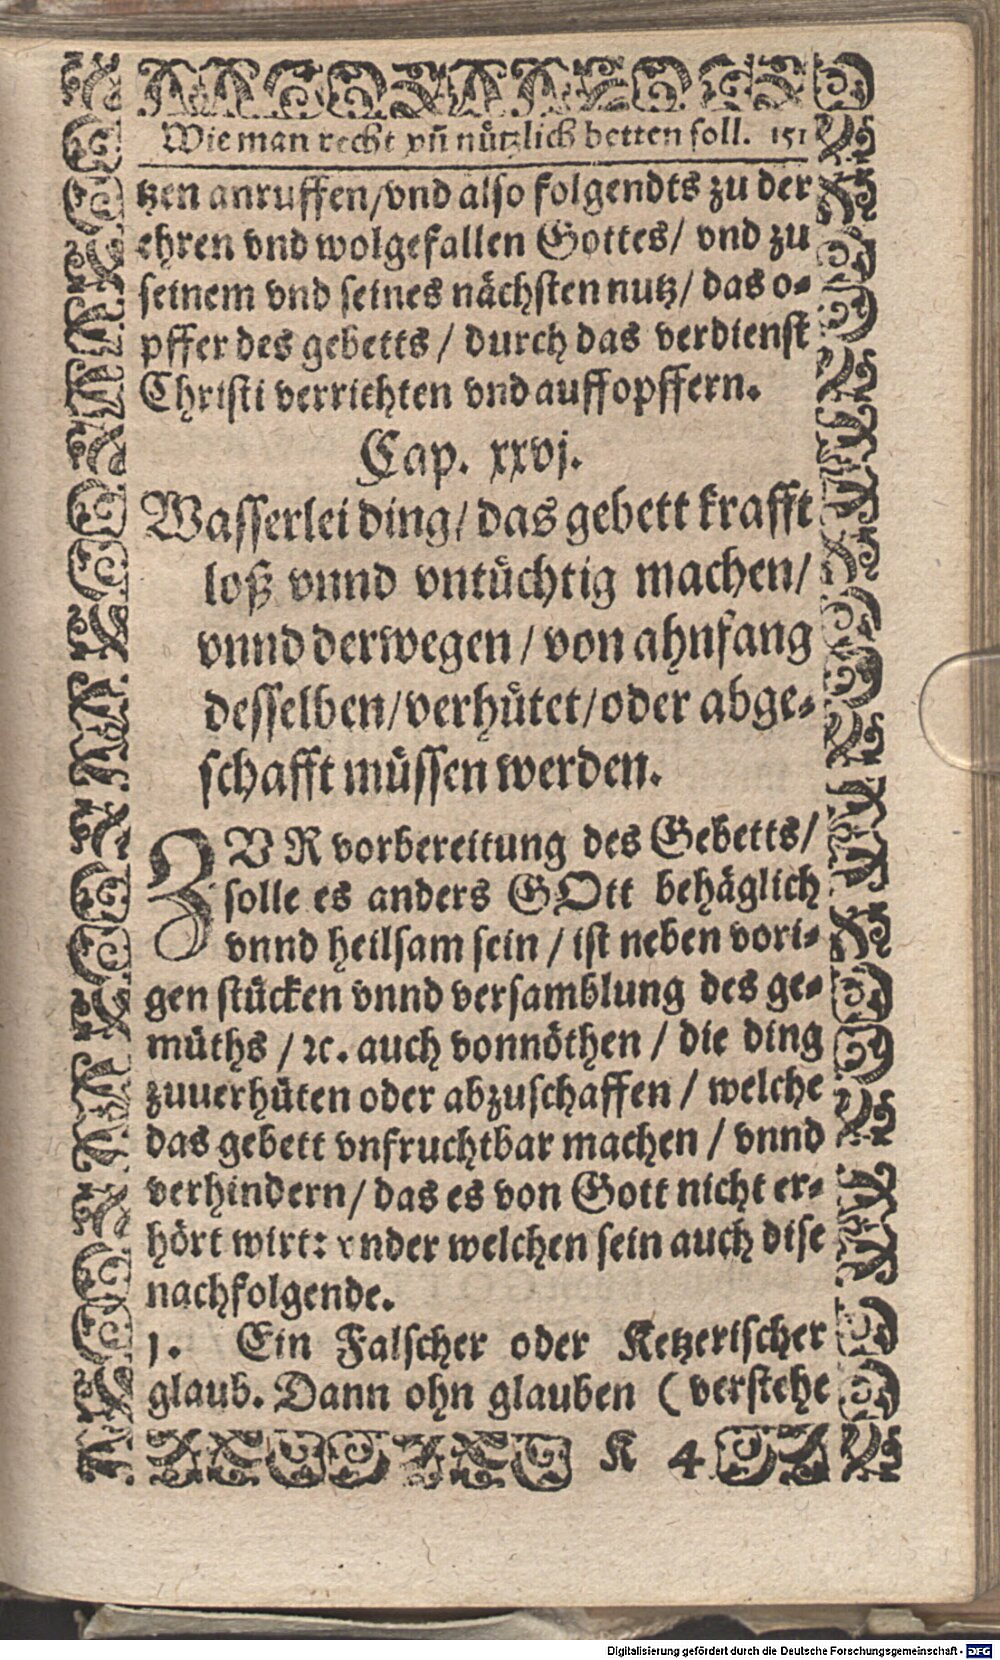 Wie man recht vñ nützlich betten soll. 151
tzen anruffen/vnd also folgendts zu der
ehren vnd wolgefallen Gottes/ vnd zu
seinem vnd seines nächsten nutz/ das o-
pffer des gebetts / durch das verdienst
Christi verrichten vnd auffopffern.
Cap. xxvj.
Wasserlei ding/ das gebett krafft
loß vnnd vntüchtig machen/
vnnd derwegen / von ahnfang
desselben/verhütet/oder abge-
schafft müssen werden.
ZVR vorbereitung des Gebetts/
solle es anders GOtt behäglich
vnnd heilsam sein / ist neben vori-
gen stücken vnnd versamblung des ge-
müths / ꝛc. auch vonnöthen / die ding
zuuerhüten oder abzuschaffen / welche
das gebett vnfruchtbar machen / vnnd
verhindern/ das es von Gott nicht er-
hört wirt: vnder welchen sein auch dise
nachfolgende.
1. Ein Falscher oder Ketzerischer
glaub. Dann ohn glauben ( verstehe
K 4
Digitalisierung gefördert durch die Deutsche Forschungsgemeinschaft - DFG